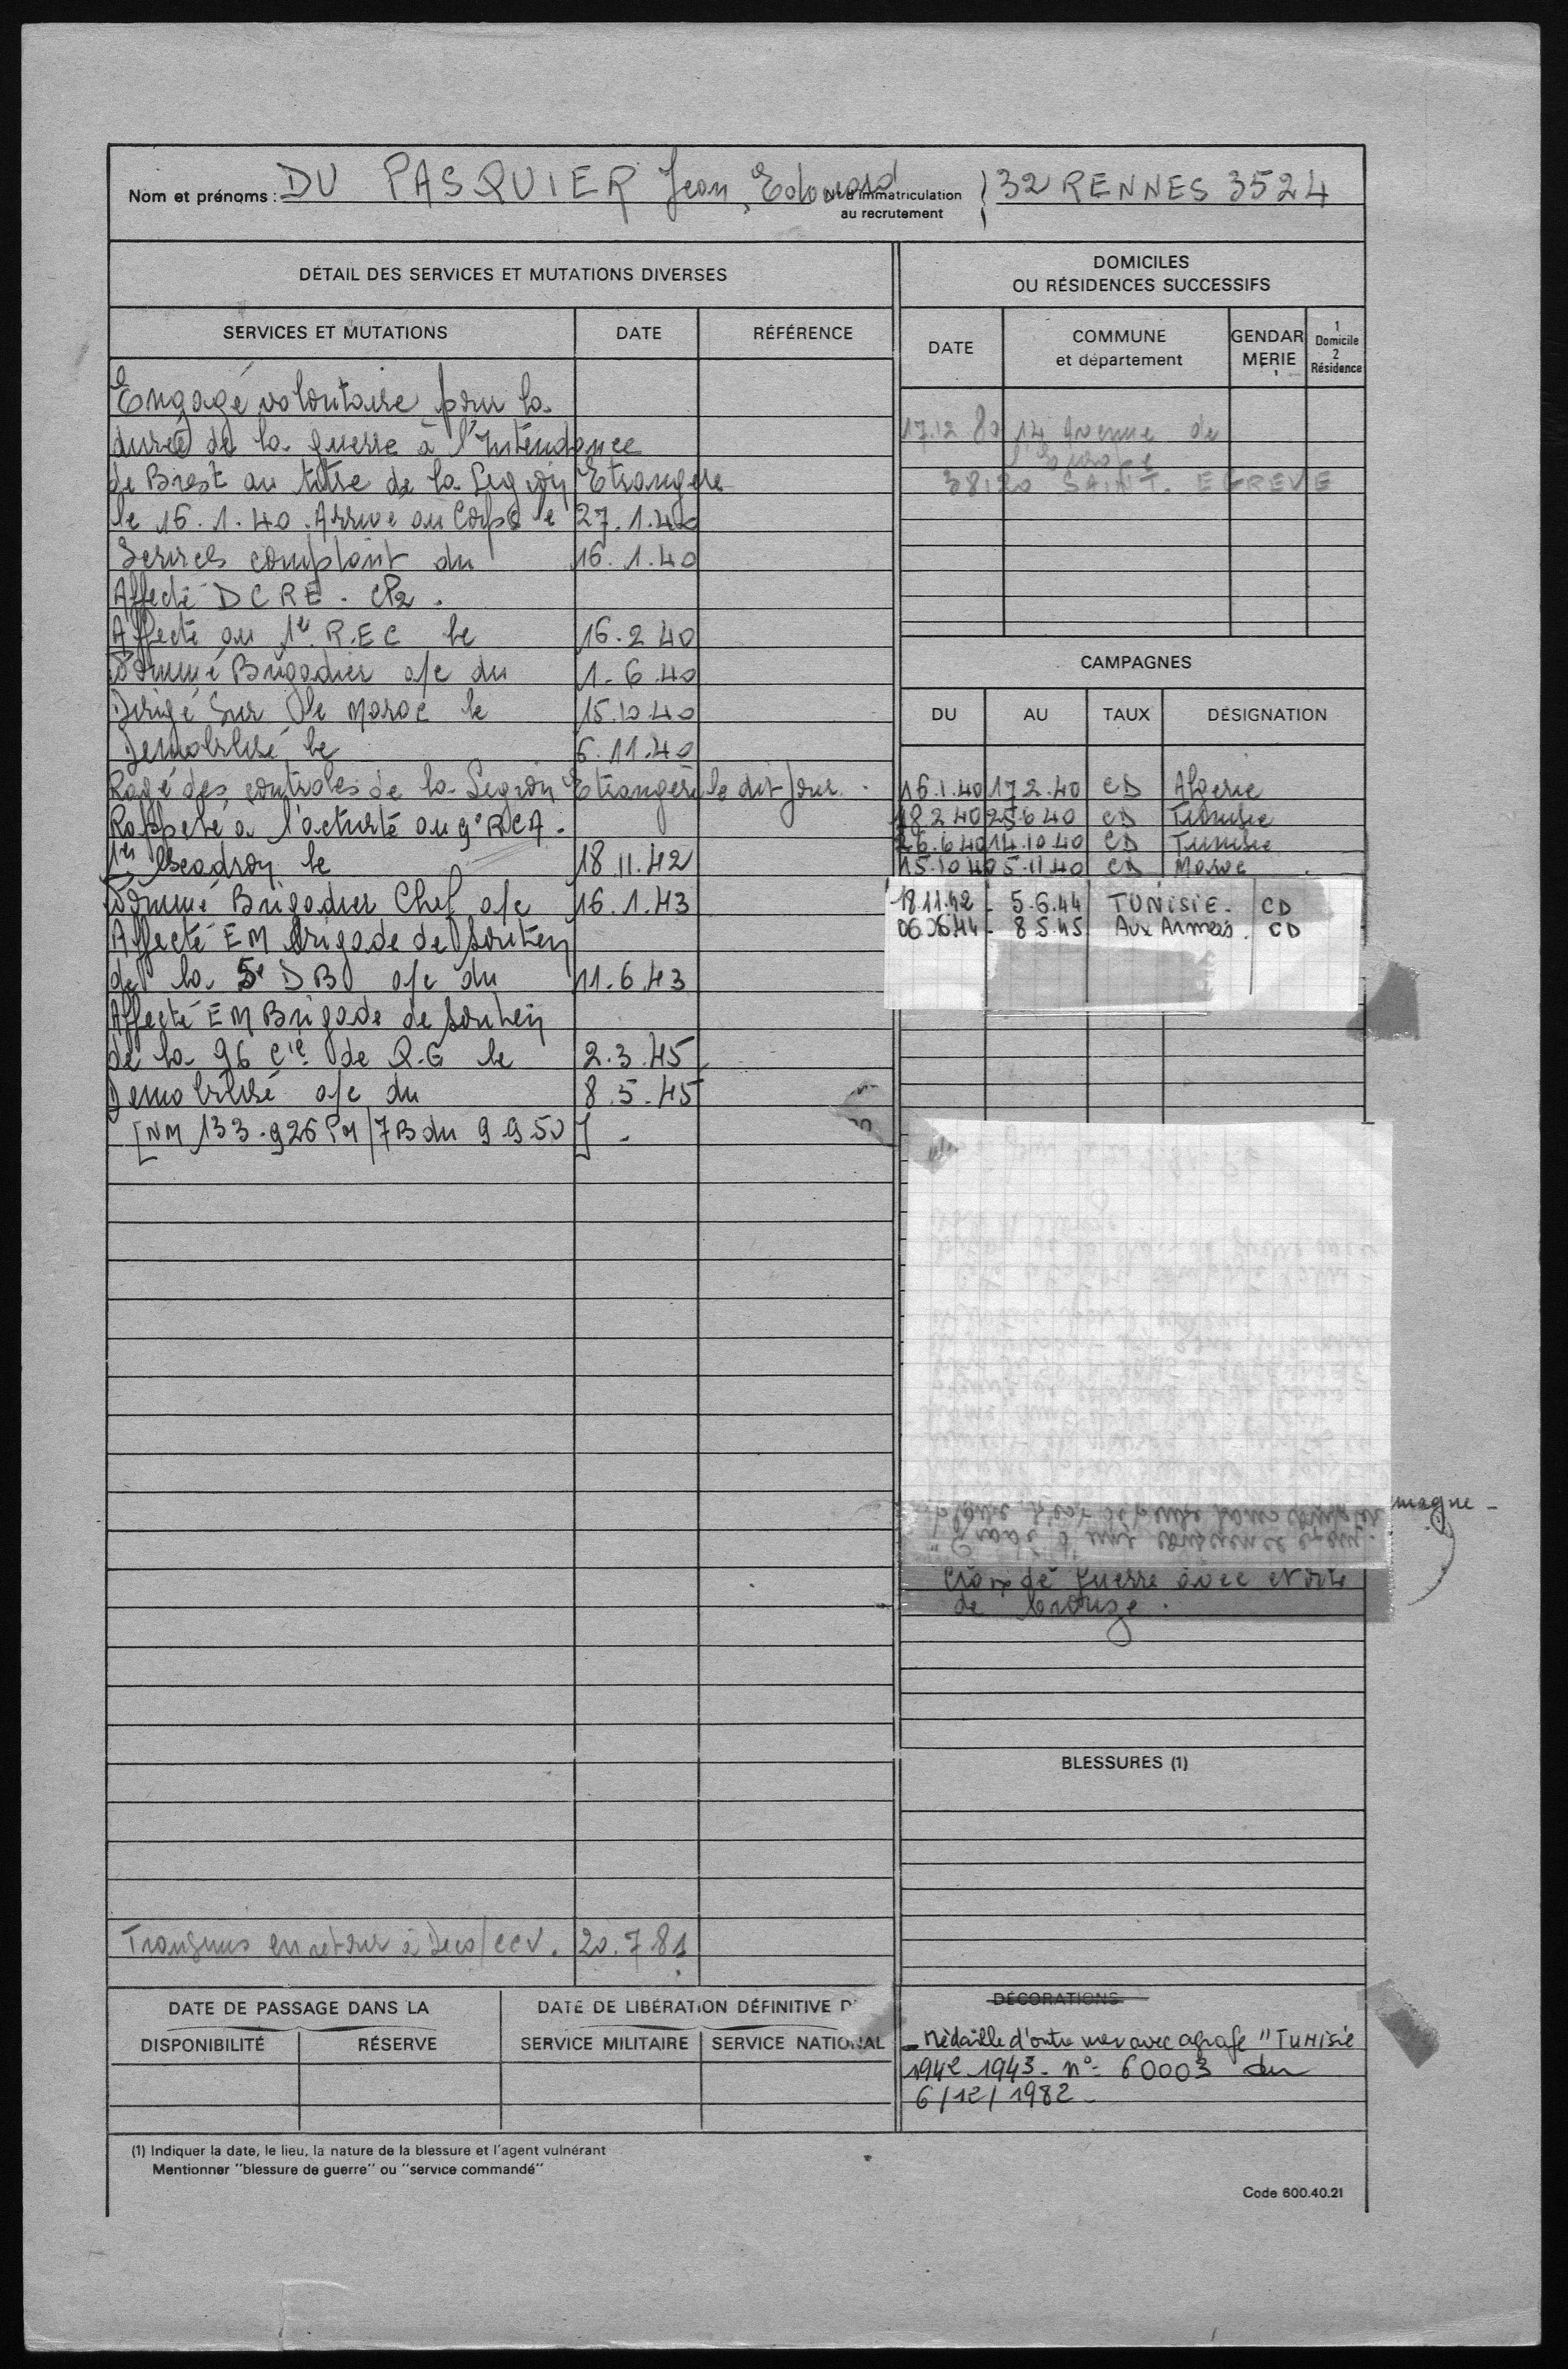 Nom et prénoms : DU PASQUIER Jean, Edouard
N° d'immatriculation
au recrutement
32 RENNES 3524
DÉTAIL DES SERVICES ET MUTATIONS DIVERSES
SERVICES ET MUTATIONS DATE RÉFÉRENCE
Engagé volontaire pour la
durée de la guerre à l'Intendance
de Brest au titre de la Légion Etrangère
le 16.1.40. Arrivé au Corps le 27.1.40
Services comptant du 16.1.40
Affecté DCRE. CP2.
Affecté au 1er R.E.C le 16.2.40
Nommé Brigadier a/c du 1.6.40
Dirigé sur le Maroc le 15.10.40
Démobilisé le 6.11.40
Rayé des contrôles de la Légion Etrangère le dit jour.
Rappelé à l'activité au 9e RCA.
1er Escadron le 18.11.42
Nommé Brigadier Chef a/c 16.1.43
Affecté EM Brigade de Soutien
de la 5e DB a/c du 11.6.43
Affecté EM Brigade de Soutien
de la 96 Cie de Q.G le 2.3.45
Démobilisé a/c du 8.5.45
[NM 133.926 PM/7B du 9.9.50] -
Transmis en retour à Deco/CCV. 20.7.81
DATE DE PASSAGE DANS LA
DISPONIBILITÉ RÉSERVE
DATE DE LIBÉRATION DÉFINITIVE D
SERVICE MILITAIRE SERVICE NATIONAL
DOMICILES
OU RÉSIDENCES SUCCESSIFS
DATE
COMMUNE
et département
GENDAR
MERIE
1
Domicile
2
Résidence
17.12.80 14 Avenue de
l'Europe
38120 SAINT. EGREVE
CAMPAGNES
DU AU TAUX DÉSIGNATION
16.1.40 17.2.40 CD Algérie
18.2.40 25.6.40 CD Tunisie
26.6.40 14.10.40 CD Tunisie
15.10.40 5.11.40 CD Maroc
18.11.42 - 5.6.44 TUNISIE. CD
06.06.44 - 8.5.45 Aux Armées. CD
magne -
Croix de guerre avec etoile
de bronze.
BLESSURES (1)
DÉCORATIONS
- Médaille d'outre mer avec agrafe "TUNISIE
1942-1943 - n° 60003 du
6/12/1982 -
(1) Indiquer la date, le lieu, la nature de la blessure et l'agent vulnérant
Mentionner "blessure de guerre" ou "service commandé"
Code 600.40.21